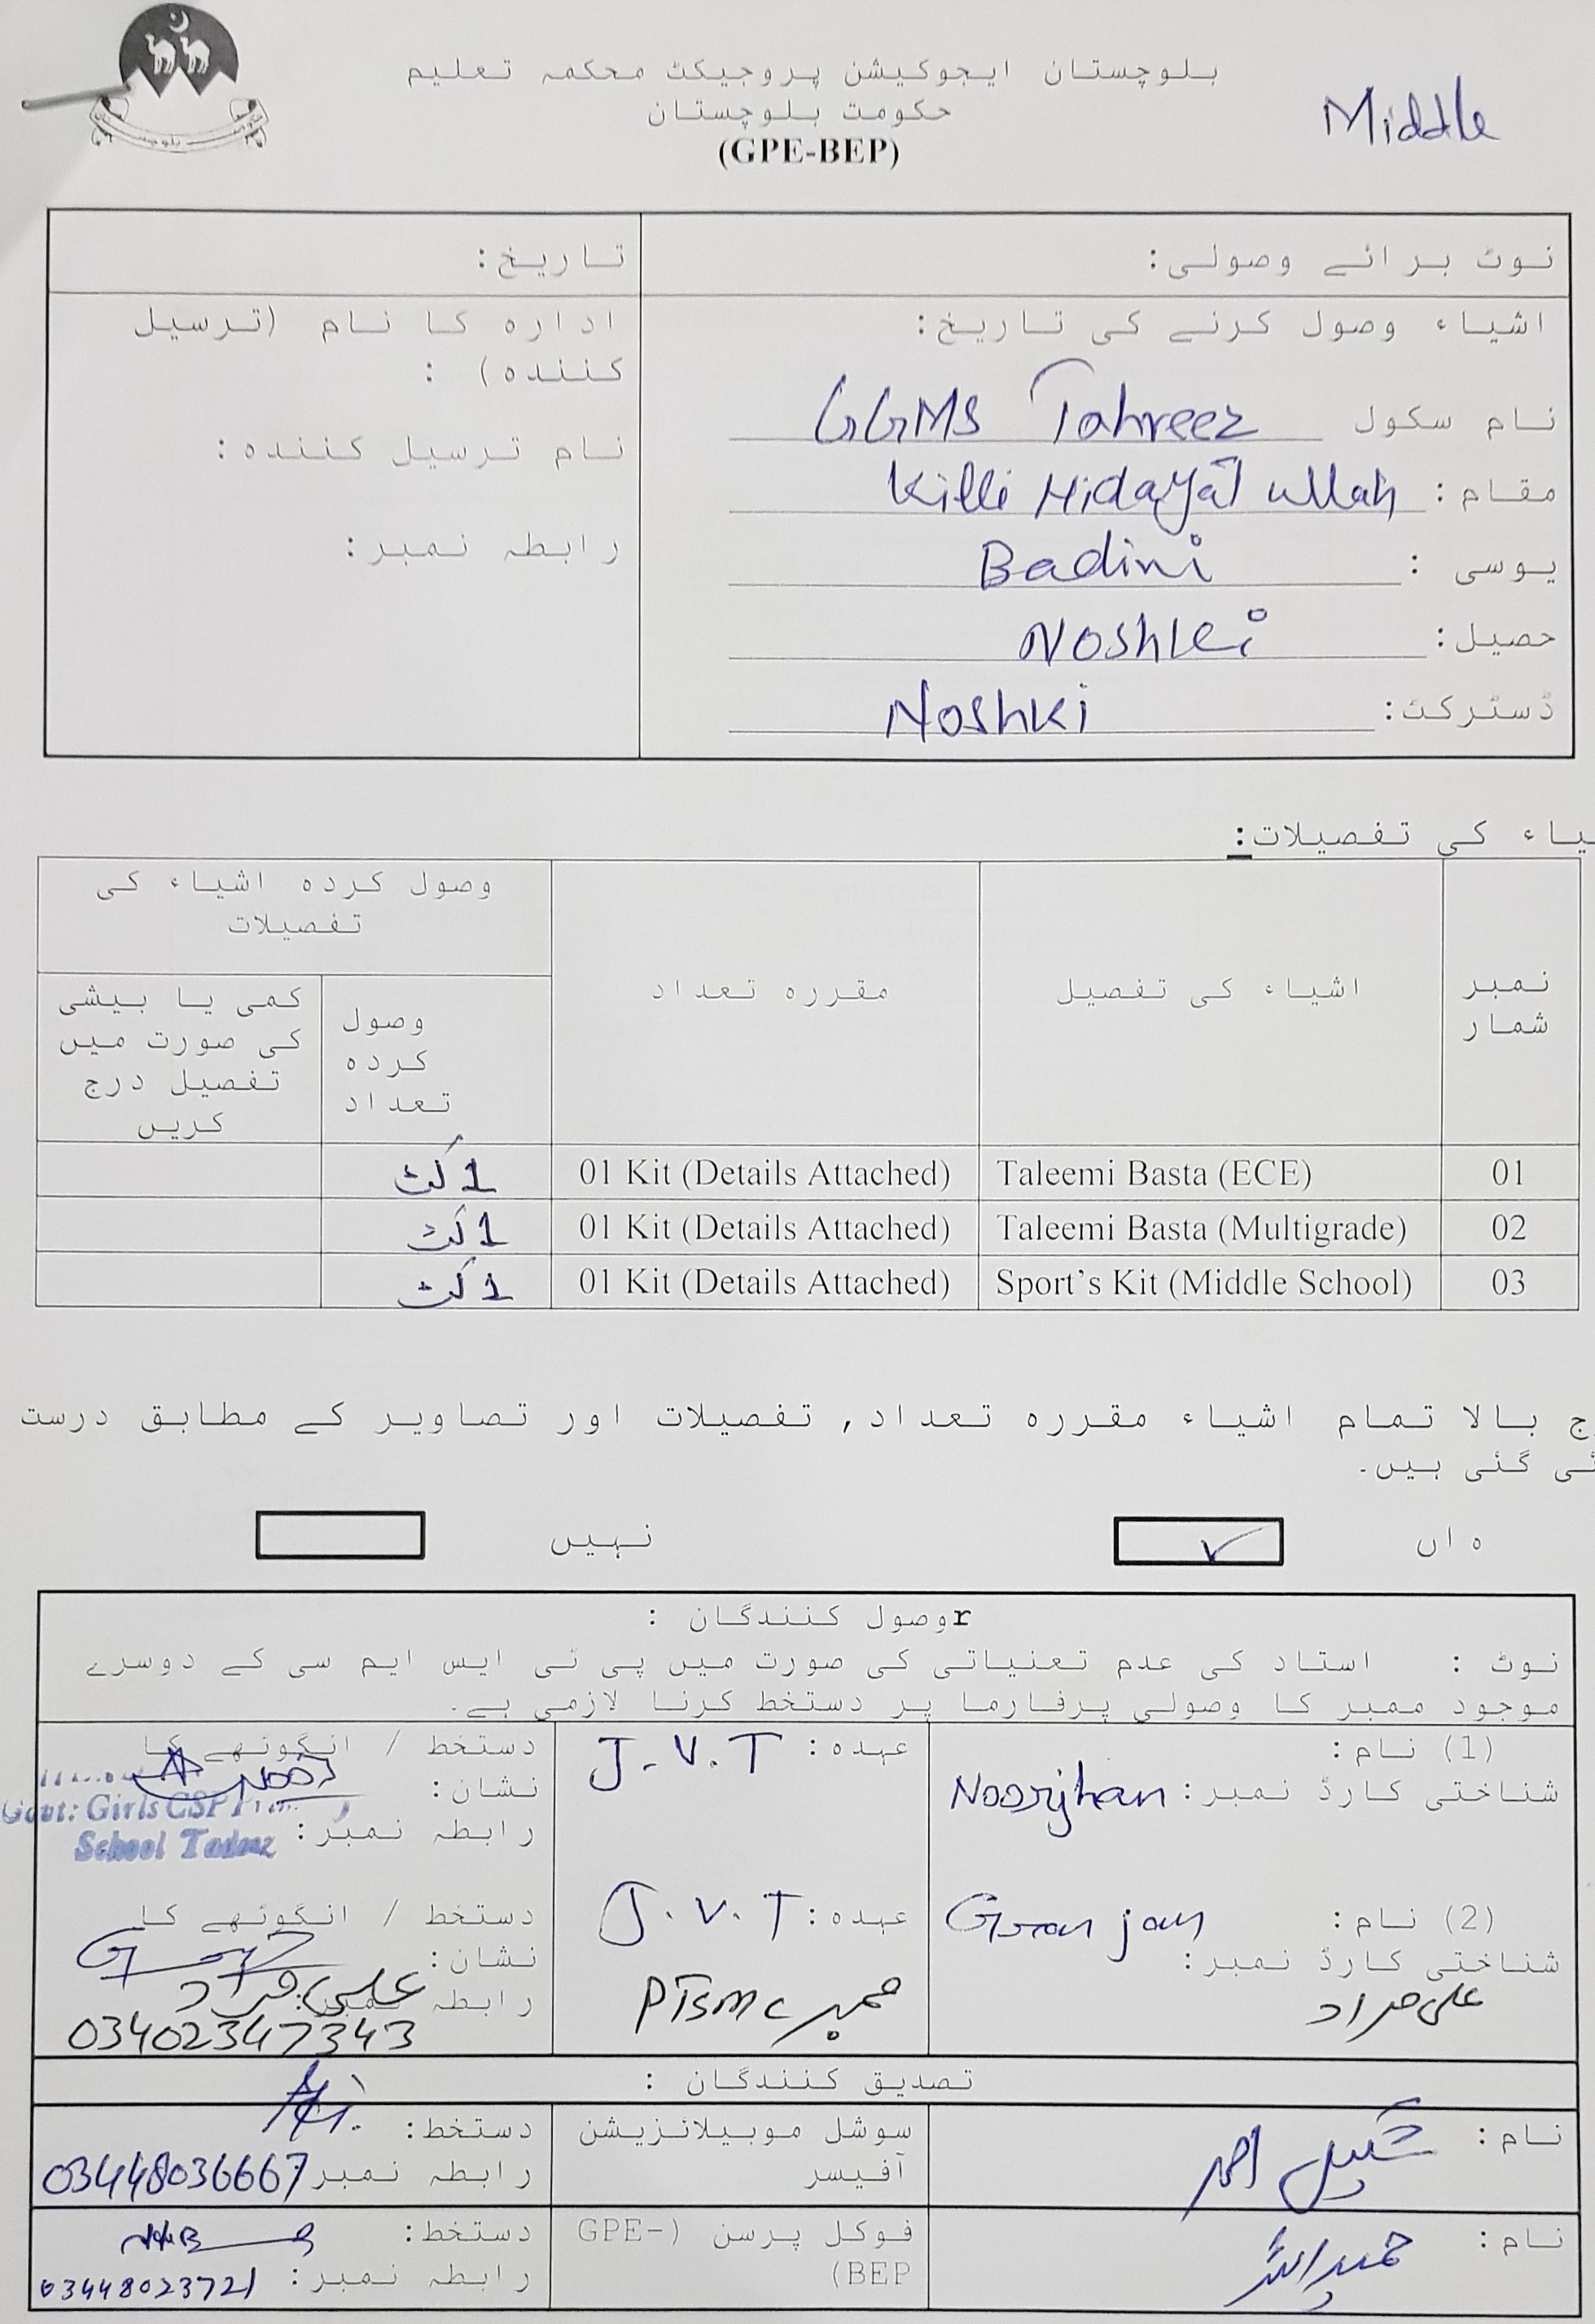 بلوچستان ایجوکیشن پروجیکٹ محکمہ تعلیم
حکومت بلوچستان
(GPE-BEP)
Middle
نوٹ برائے وصولی:
تاریخ:
اشیاء وصول کرنے کی تاریخ:
نام سکول GGMS Tahreez
مقام: Killi Hidayat ullah
یوسی : Badini
حصیل: Noshki
ڈسٹرکٹ: Noshki
ادارہ کا نام (ترسیل
کنندہ) :
نام ترسیل کنندہ:
رابطہ نمبر:
یاء کی تفصیلات:
نمبر شمار
اشیاء کی تفصیل
مقررہ تعداد
وصول کردہ اشیاء کی
تفصیلات
وصول
کردہ
تعداد
کمی یا بیشی
کی صورت میں
تفصیل درج
کریں
01 Taleemi Basta (ECE) 01 Kit (Details Attached) 1 کٹ
02 Taleemi Basta (Multigrade) 01 Kit (Details Attached) 1 کٹ
03 Sport’s Kit (Middle School) 01 Kit (Details Attached) 1 کٹ
ج بالا تمام اشیاء مقررہ تعداد, تفصیلات اور تصاویر کے مطابق درست
ئی گئی ہیں۔
ہاں ✓ نہیں
rوصول کنندگان :
نوٹ : استاد کی عدم تعنیاتی کی صورت میں پی ٹی ایس ایم سی کے دوسرے
موجود ممبر کا وصولی پرفارما پر دستخط کرنا لازمی ہے۔
(1) نام:
شناختی کارڈ نمبر: Noorjhan
عہدہ: J.V.T
دستخط / انگوٹھے کا
نشان:
رابطہ نمبر:
Govt: Girls CSP
School
(2) نام: Goran jan
شناختی کارڈ نمبر:
علی مراد
عہدہ: J.V.T
ممبر PTSMC
دستخط / انگوٹھے کا
نشان:
علی مراد
رابطہ نمبر:
03402347343
تصدیق کنندگان :
نام: شکیل احمد
سوشل موبیلائزیشن
آفیسر
دستخط:
رابطہ نمبر 03448036667
نام: حمید اللہ
فوکل پرسن (GPE-
BEP)
دستخط:
رابطہ نمبر: 03448023721